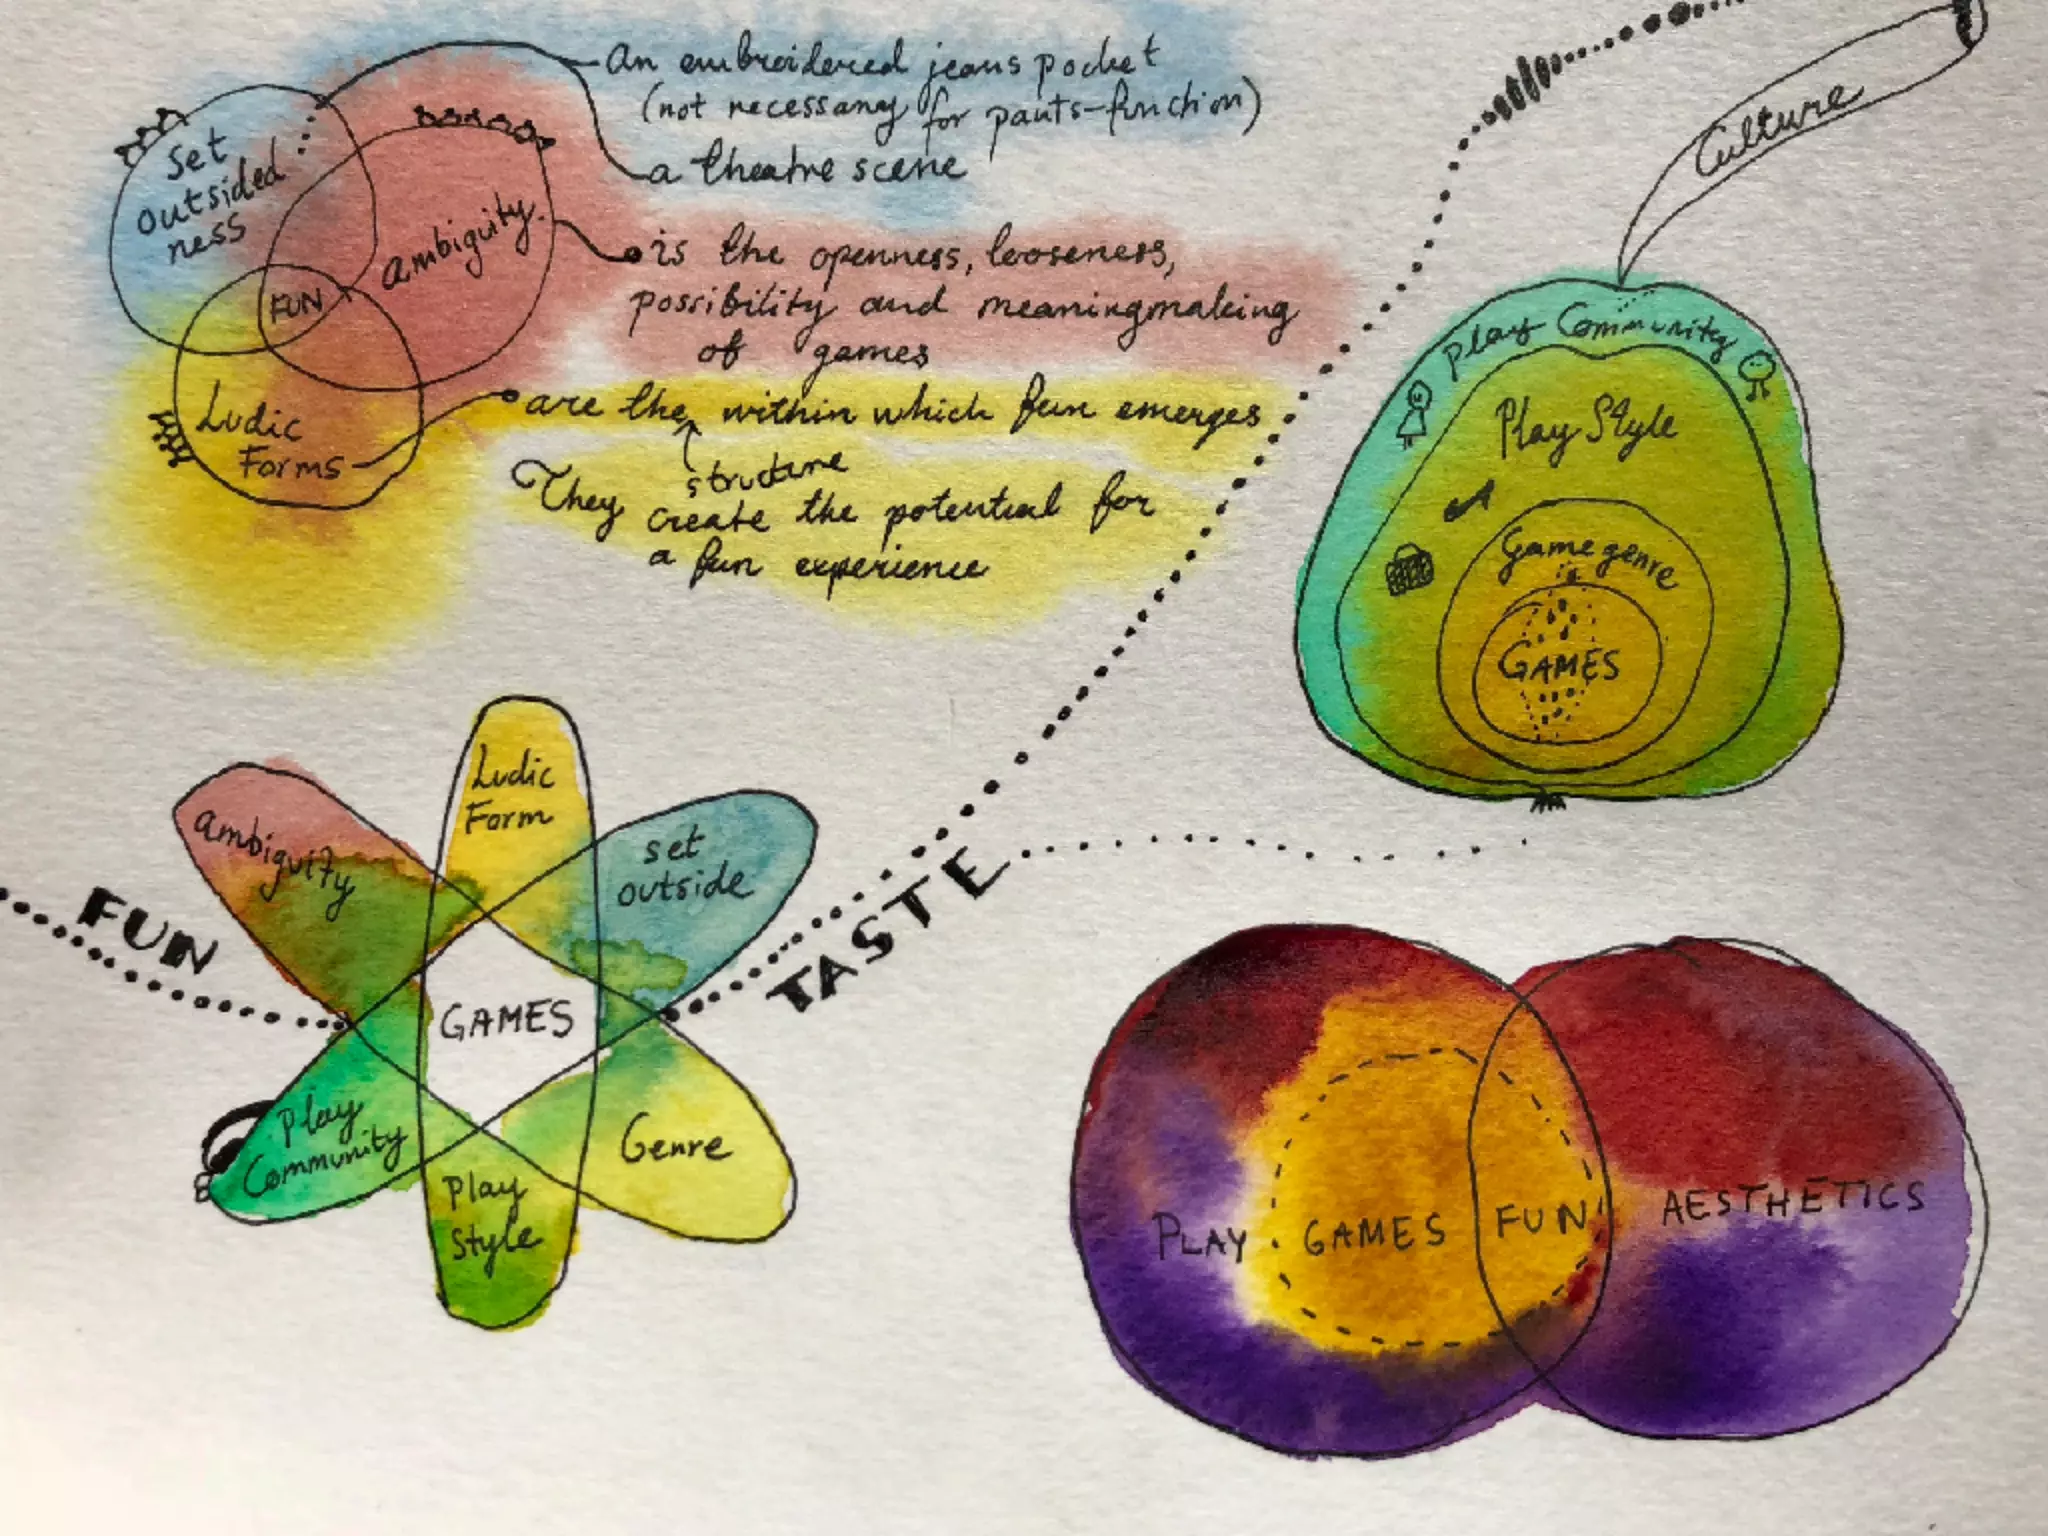 Set
outsided
ness
ambiguity.
FUN
Ludic
Forms
An embroidered jeans pocket
(not necessary for pants-function)
a theatre scene
is the openness, looseness,
possibility and meaningmaking
of games
are the within which fun emerges
structure
They create the potential for
a fun experience
Culture
Play Community
Play Style
Game genre
GAMES
FUN
TASTE
Ludic
Form
ambiguity
set
outside
GAMES
Play
Community
Play
Style
Genre
PLAY
GAMES
FUN
AESTHETICS